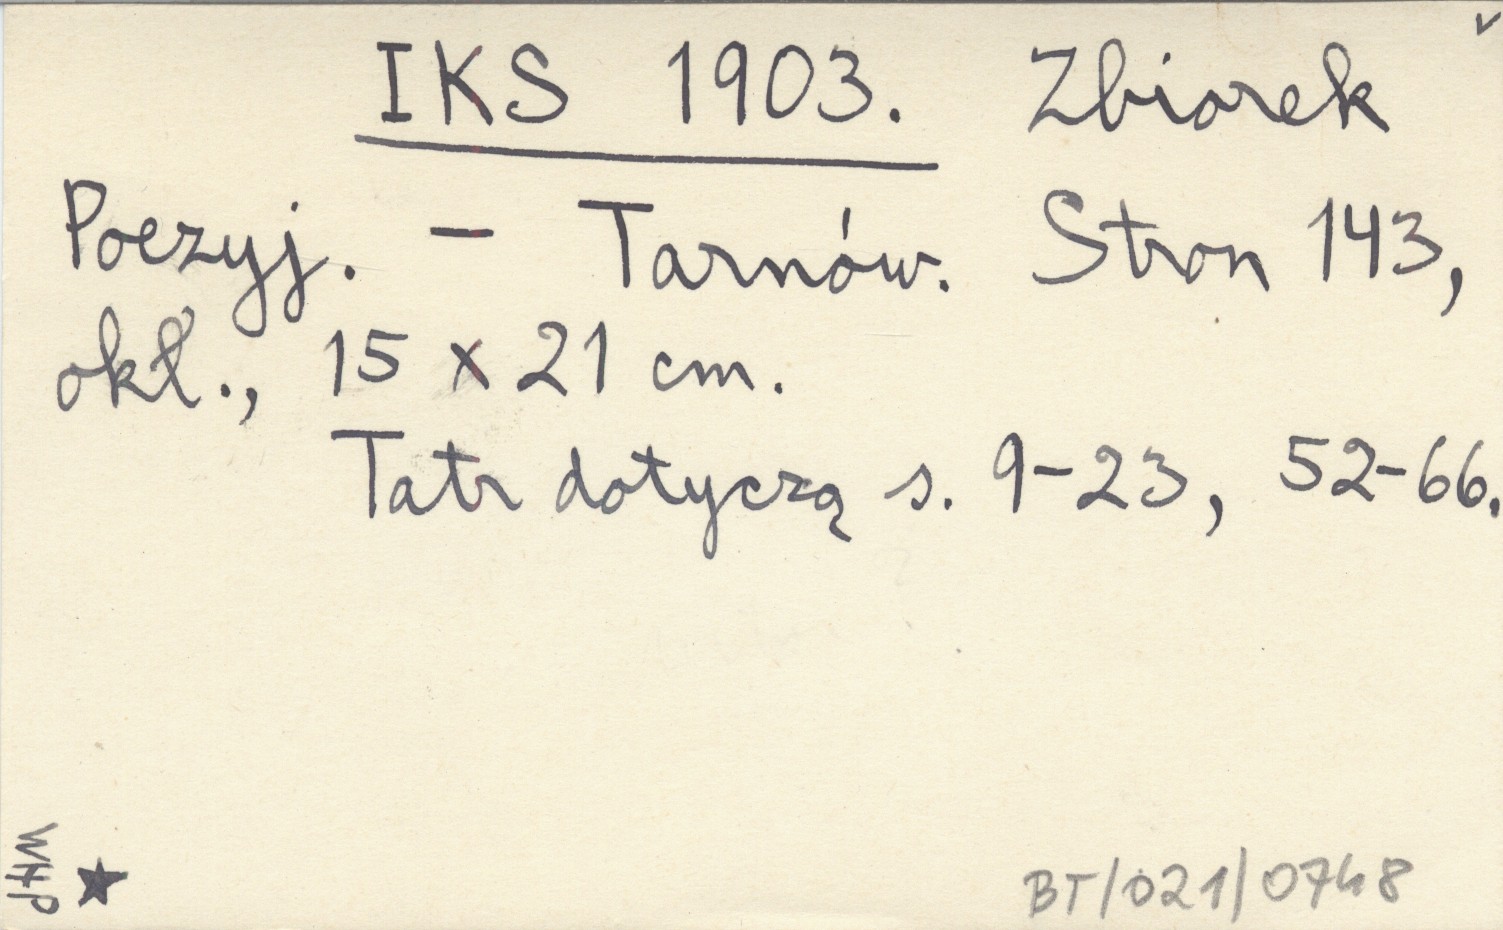 IKS 1903. Zbiorek
Poezyj. – Tarnów. Stron 143,
okł., 15 x 21 cm.
Tatr dotyczą s. 9-23, 52-66.
WHP
BT/021/0748